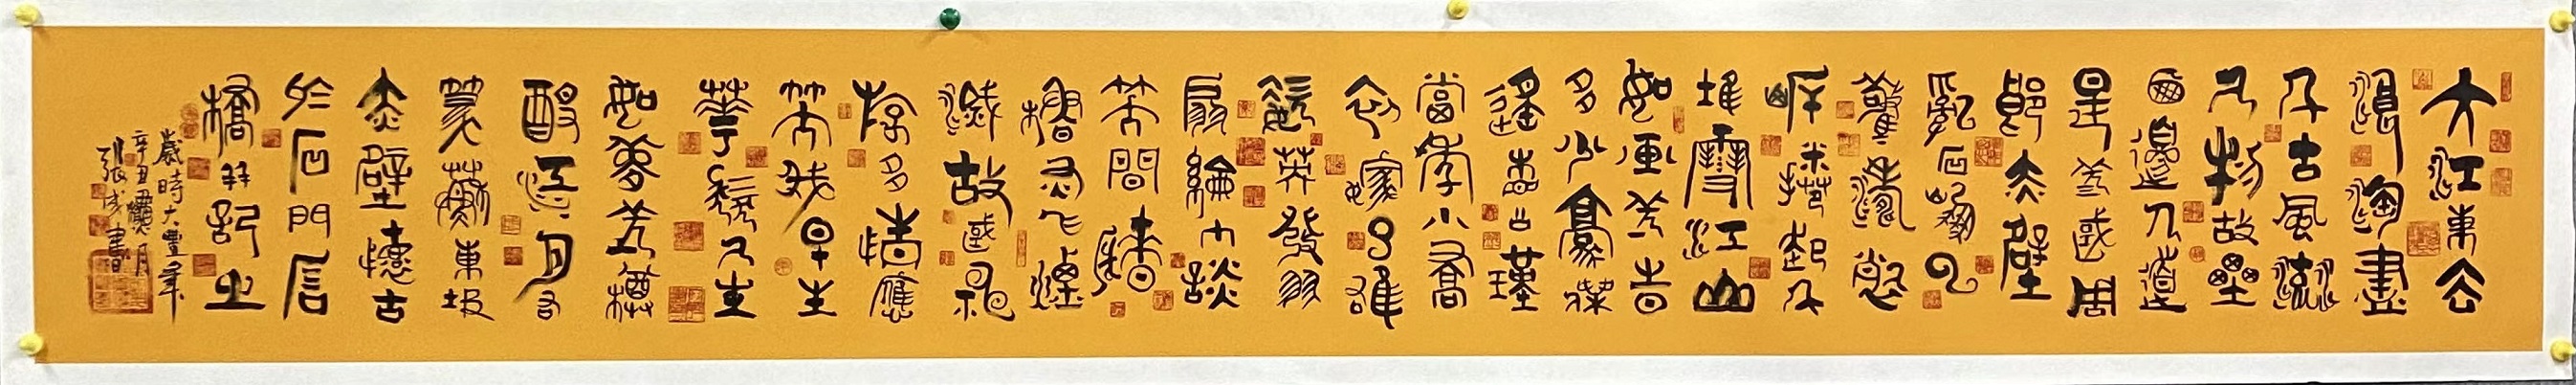 大江東去
浪淘盡
千古風流
人物故壘
西邊人道
是三國周
郎赤壁
亂石崩雲
驚濤裂
岸捲起千
堆雪江山
如畫一時
多少豪傑
遙想公瑾
當年小喬
初嫁了雄
姿英發羽
扇綸巾談
笑間檣
櫓灰飛煙
滅故國神
遊多情應
笑我早生
華髮人生
如夢一樽
酹江月右
篆蘇東坡
赤壁懷古
於石門信
橋記之
歲時大豐年
辛丑臘月
張成書